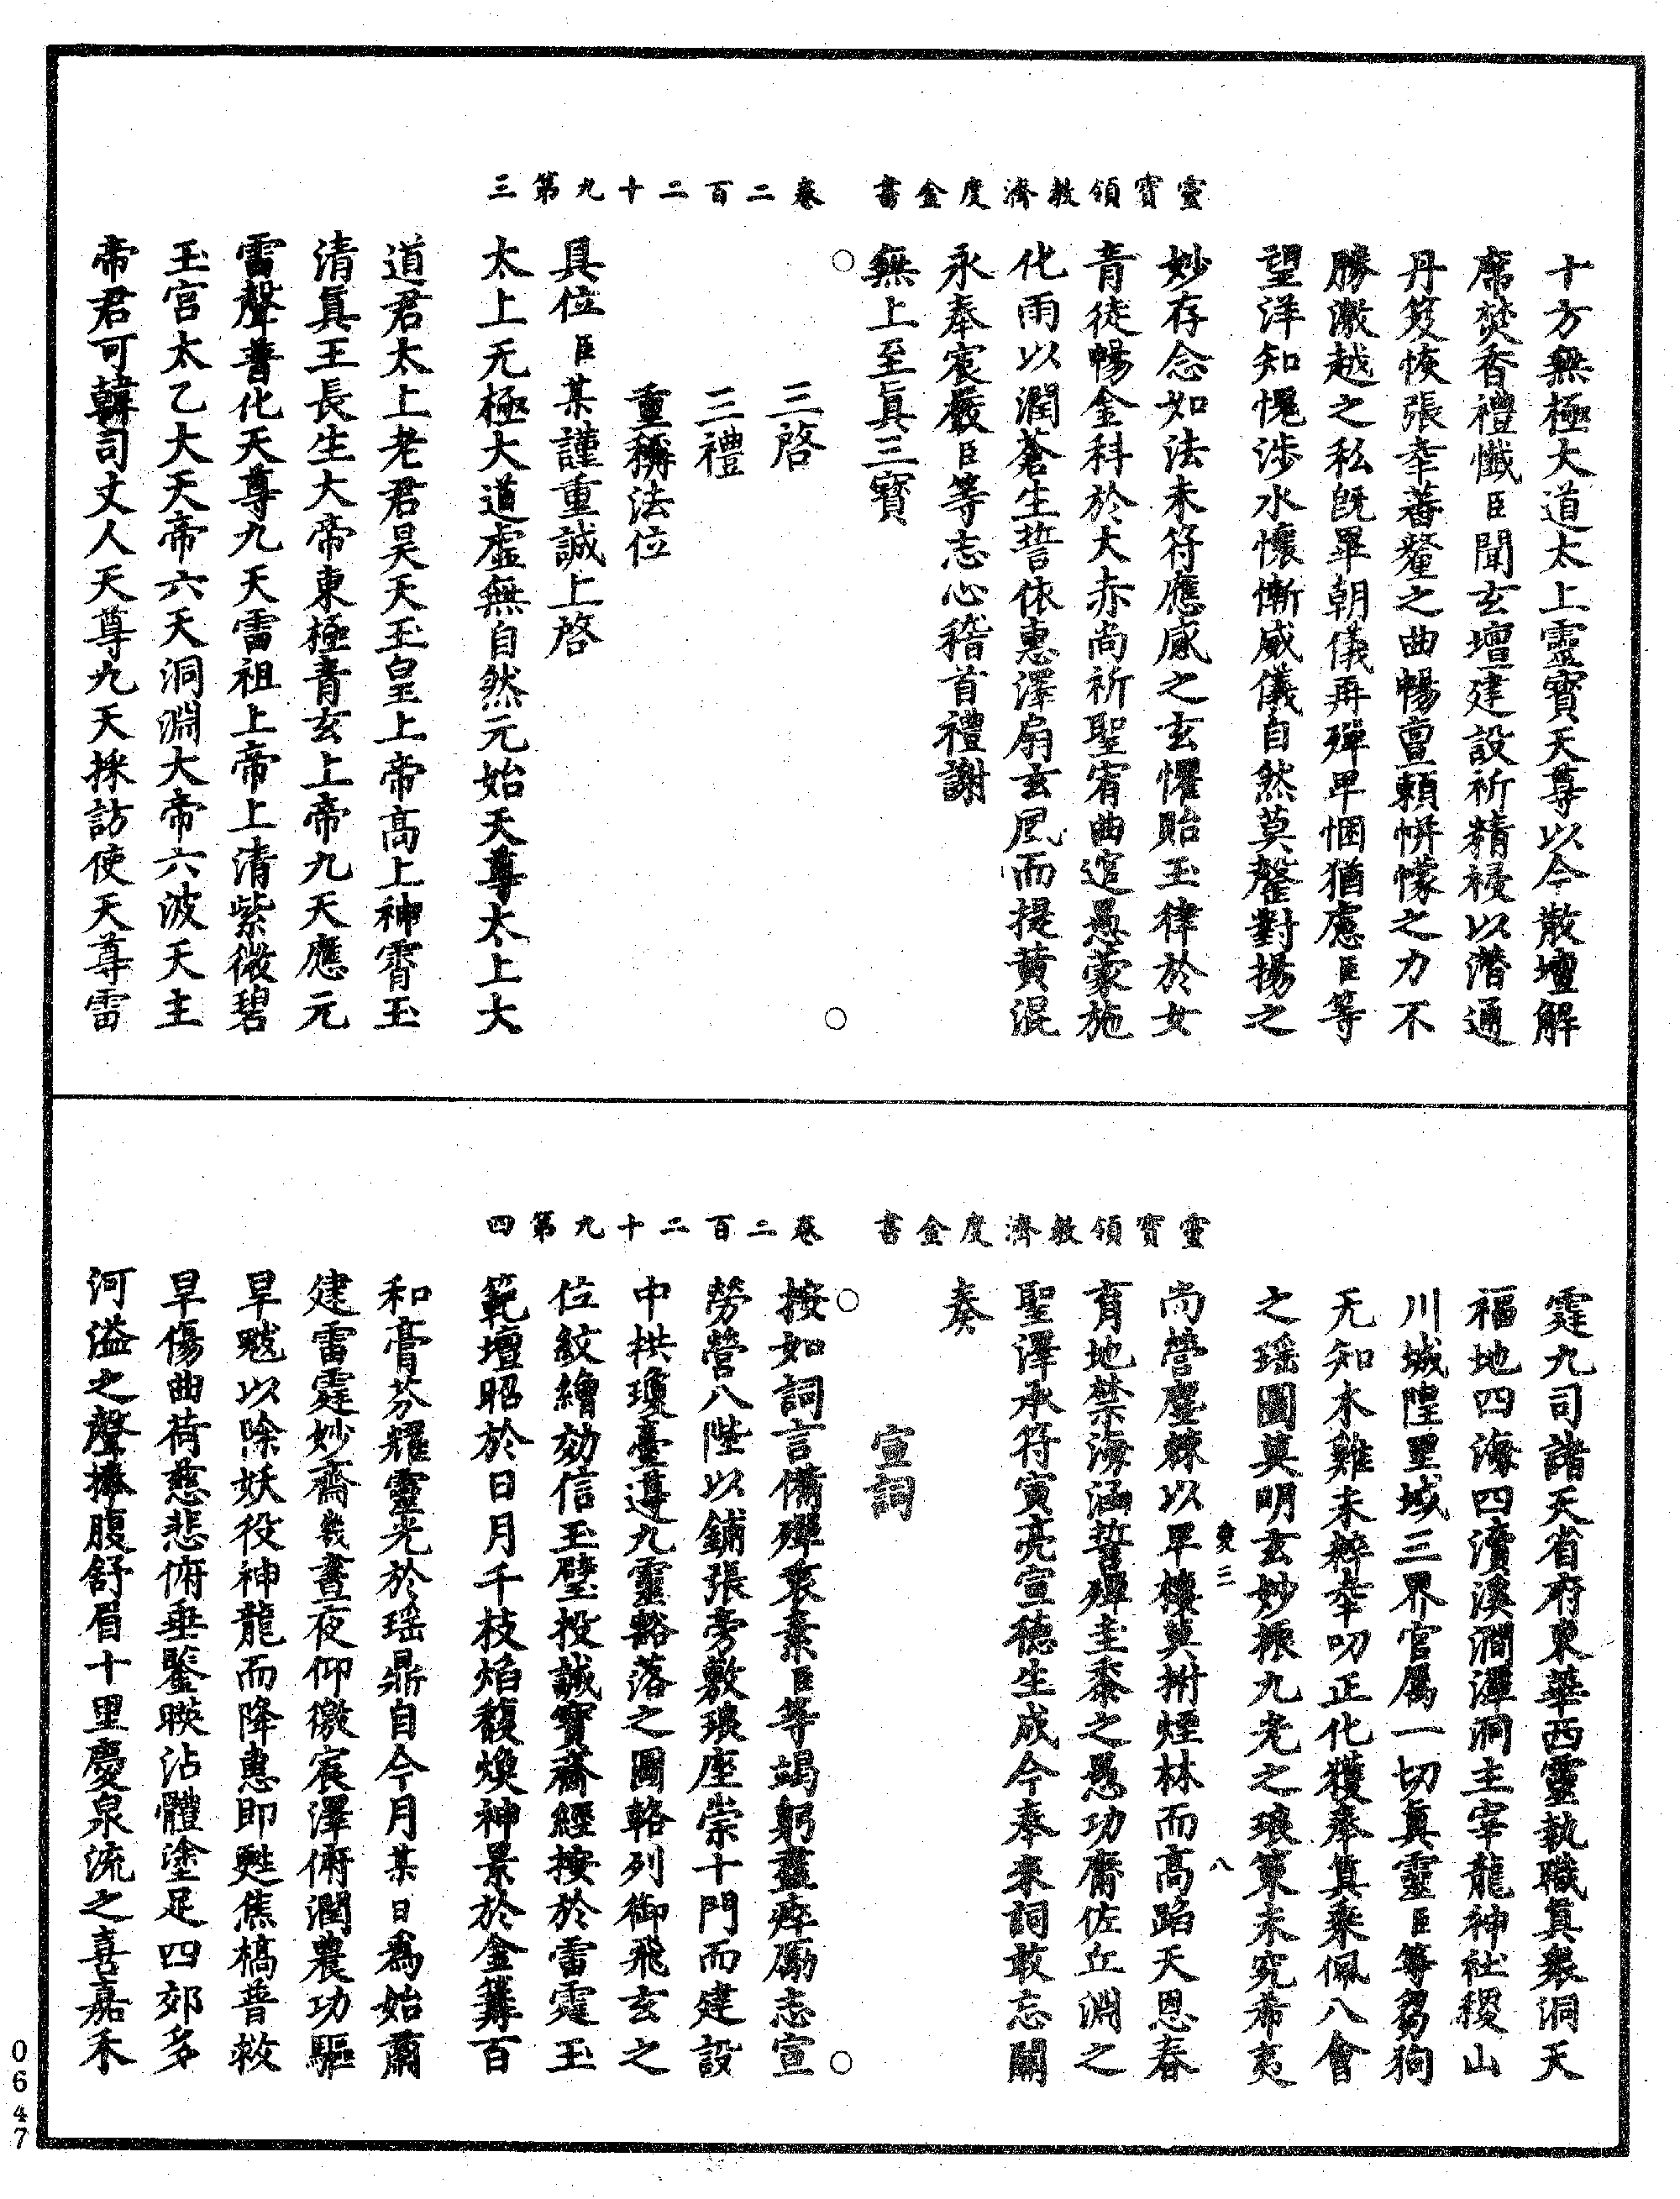 靈寶領教濟度金書　卷二百二十九第三
十方無極大道太上靈寶天尊以今散壇解
席焚香禮懺臣聞玄壇建設祈精祲以潛通
丹笈恢張幸蕃釐之曲暢亶賴恲幪之力不
勝激越之私旣畢朝儀再殫卑悃猶慮臣等
望洋知愧涉水懷慚威儀自然莫罄對揚之
妙存念如法未符應感之玄懼貽玉律於女
青徒暢金科於大赤尚祈聖宥曲逭愚蒙施
化雨以潤蒼生誓依惠澤扇玄風而提黃混
永奉宸嚴臣等志心稽首禮謝
無上至眞三寶
三啓
三禮
重稱法位
具位臣某謹重誠上啓
太上无極大道虛無自然元始天尊太上大
道君太上老君昊天玉皇上帝高上神霄玉
清眞王長生大帝東極青玄上帝九天應元
雷聲普化天尊九天雷祖上帝上清紫微碧
玉宮太乙大天帝六天洞淵大帝六波天主
帝君可韓司丈人天尊九天採訪使天尊雷
靈寶領教濟度金書　卷二百二十九第四
霆九司諸天省府東華西靈執職眞衆洞天
福地四海四瀆溪澗潭洞主宰龍神社稷山
川城隍里域三界官屬一切眞靈臣等芻狗
无知木雞未粹幸叨正化獲奉眞乘佩八會
之瑶圖莫明玄妙振九光之琅策未究希夷
三　八
尚營塵棘以卑棲莫拊煙林而高蹈天恩春
育地禁海涵誓殫圭黍之愚功庸佐丘淵之
聖澤承符寅亮宣德生成今奉來詞敢忘關
奏
宣詞
按如詞言備殫衷素臣等竭躬盡瘁勵志宣
勞營八陛以鋪張旁敷琅座崇十門而建設
中拱瓊臺遵九靈豁落之圖輅列御飛玄之
位紋繒効信玉璧投誠寶齋經按於雷霆玉
範壇昭於日月千枝焰馥煥神景於金篝百
和膏芬耀靈光於瑶鼎自今月某日爲始肅
建雷霆妙齋幾晝夜仰徼宸澤俯潤農功驅
旱魃以除妖役神龍而降惠即甦焦槁普救
旱傷曲荷慈悲俯垂鑒映沾體塗足四郊多
河溢之聲捧腹舒眉十里慶泉流之喜嘉禾
0647